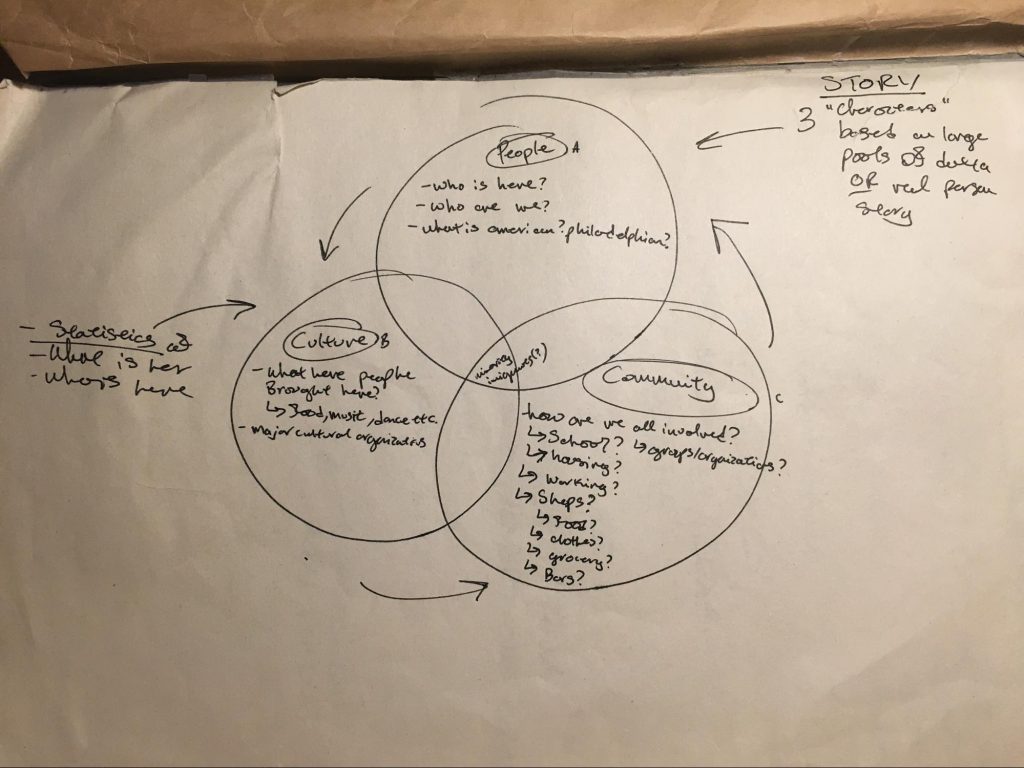 STORY
3 "Characters"
based on large
pools of data
OR real person
story
People A
- who is here?
- who are we?
- what is american? philadelphian?
- Statistics of
- What is her
- who is here
Culture B
- What have people
Brought here?
↳ Food, music, dance etc.
- major cultural organizations
minority
Community
C
- how are we all involved?
↳ School? ↳ groups/organizations?
↳ housing?
↳ working?
↳ Shops?
↳ food?
↳ clothes?
↳ grocery?
↳ Bars?